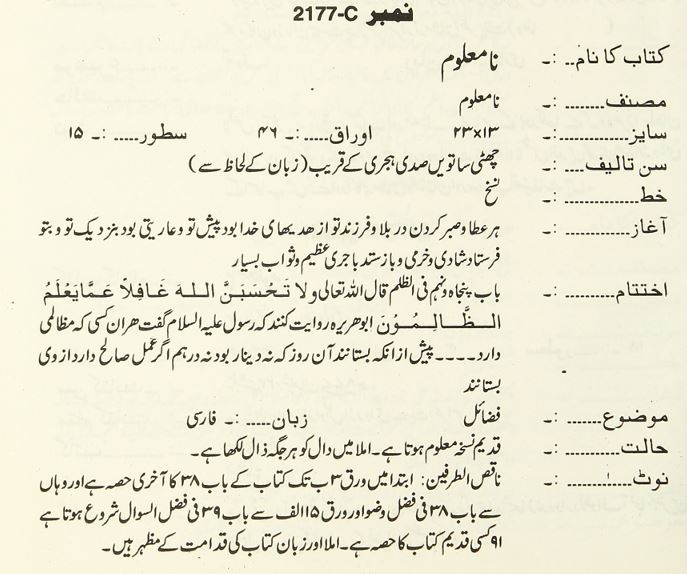 نمبر 2177-C
کتاب کا نام.. :۔ نامعلوم
مصنف........ :۔ نامعلوم
سایز.......... :۔ ۱۳×۲۳ اوراق.....:۔ ۴۶ سطور.....:۔ ۱۵
سن تالیف..... :۔ چھٹی ساتویں صدی ہجری کے قریب (زبان کے لحاظ سے)
خط............. :۔ نسخ
آغاز........... :۔ ہر عطا و صبر کردن در بلا و فرزند تو از ھدیھای خدا بود پیش تو و عاریتی بود بنزدیک تو و بتو
فرستاد شادی و خرمی و باز ستد با جری عظیم و ثواب بسیار
اختتام........ :۔ باب پنجاہ و نہم فی الظلم قال اللہ تعالی ولا تَحْسَبَنَّ اللهَ غَافِلاً عَمَّا يَعْلَمُ
الظَّالِمُوْنَ ابوھریرہ روایت کنند کہ رسول علیہ السلام گفت ھران کسی کہ مظالمی
دارد۔۔۔۔ پیش از انکہ بستانند آن روز کہ نہ دینار بود نہ درہم اگر عمل صالح دارد از وی
بستانند
موضوع....... :۔ فضائل زبان.....:۔ فارسی
حالت......... :۔ قدیم نسخہ معلوم ہوتا ہے۔ املا میں دال کو ہر جگہ ذال لکھا ہے۔
نوٹ........... :۔ ناقص الطرفین: ابتدا میں ورق ۳ب تک کتاب کے باب ۳۸ کا آخری حصہ ہے اور وہاں
سے باب ۳۸ فی فضل وضو اور ورق ۱۵ الف سے باب ۳۹ فی فضل السوال شروع ہوتا ہے
۹۱ کسی قدیم کتاب کا حصہ ہے۔ املا اور زبان کتاب کی قدامت کے مظہر ہیں۔